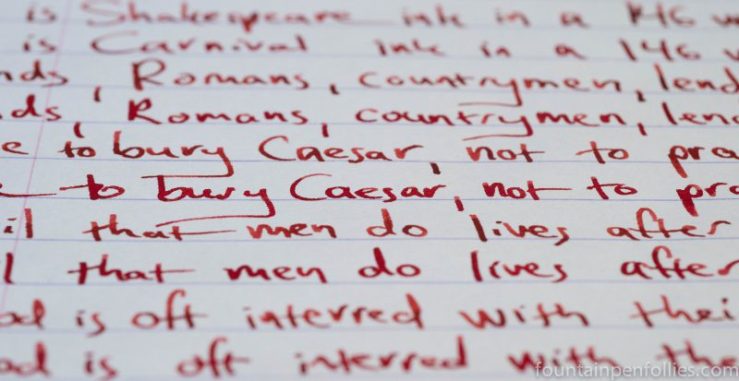 is Shakespeare ink in a 146
is Carnival ink in a 146
nds, Romans, countrymen, lend
ds, Romans, countrymen, len
e to bury Caesar, not to pra
to bury Caesar, not to pra
il that men do lives after
l that men do lives after
od is oft interred with thei
od is oft interred with the
fountainpenfollies.com